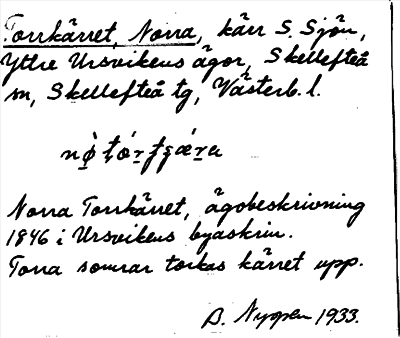 Torrkärret, Norra, kärr S. Sjön,
Yttre Ursvikens ägor, Skellefteå
sn, Skellefteå tg, Västerb. l.
Norra Torrkärret, ägobeskrivning
1846 i Ursvikens byaskrin.
Torra somrar torkas kärret upp.
B. Nygren 1933.